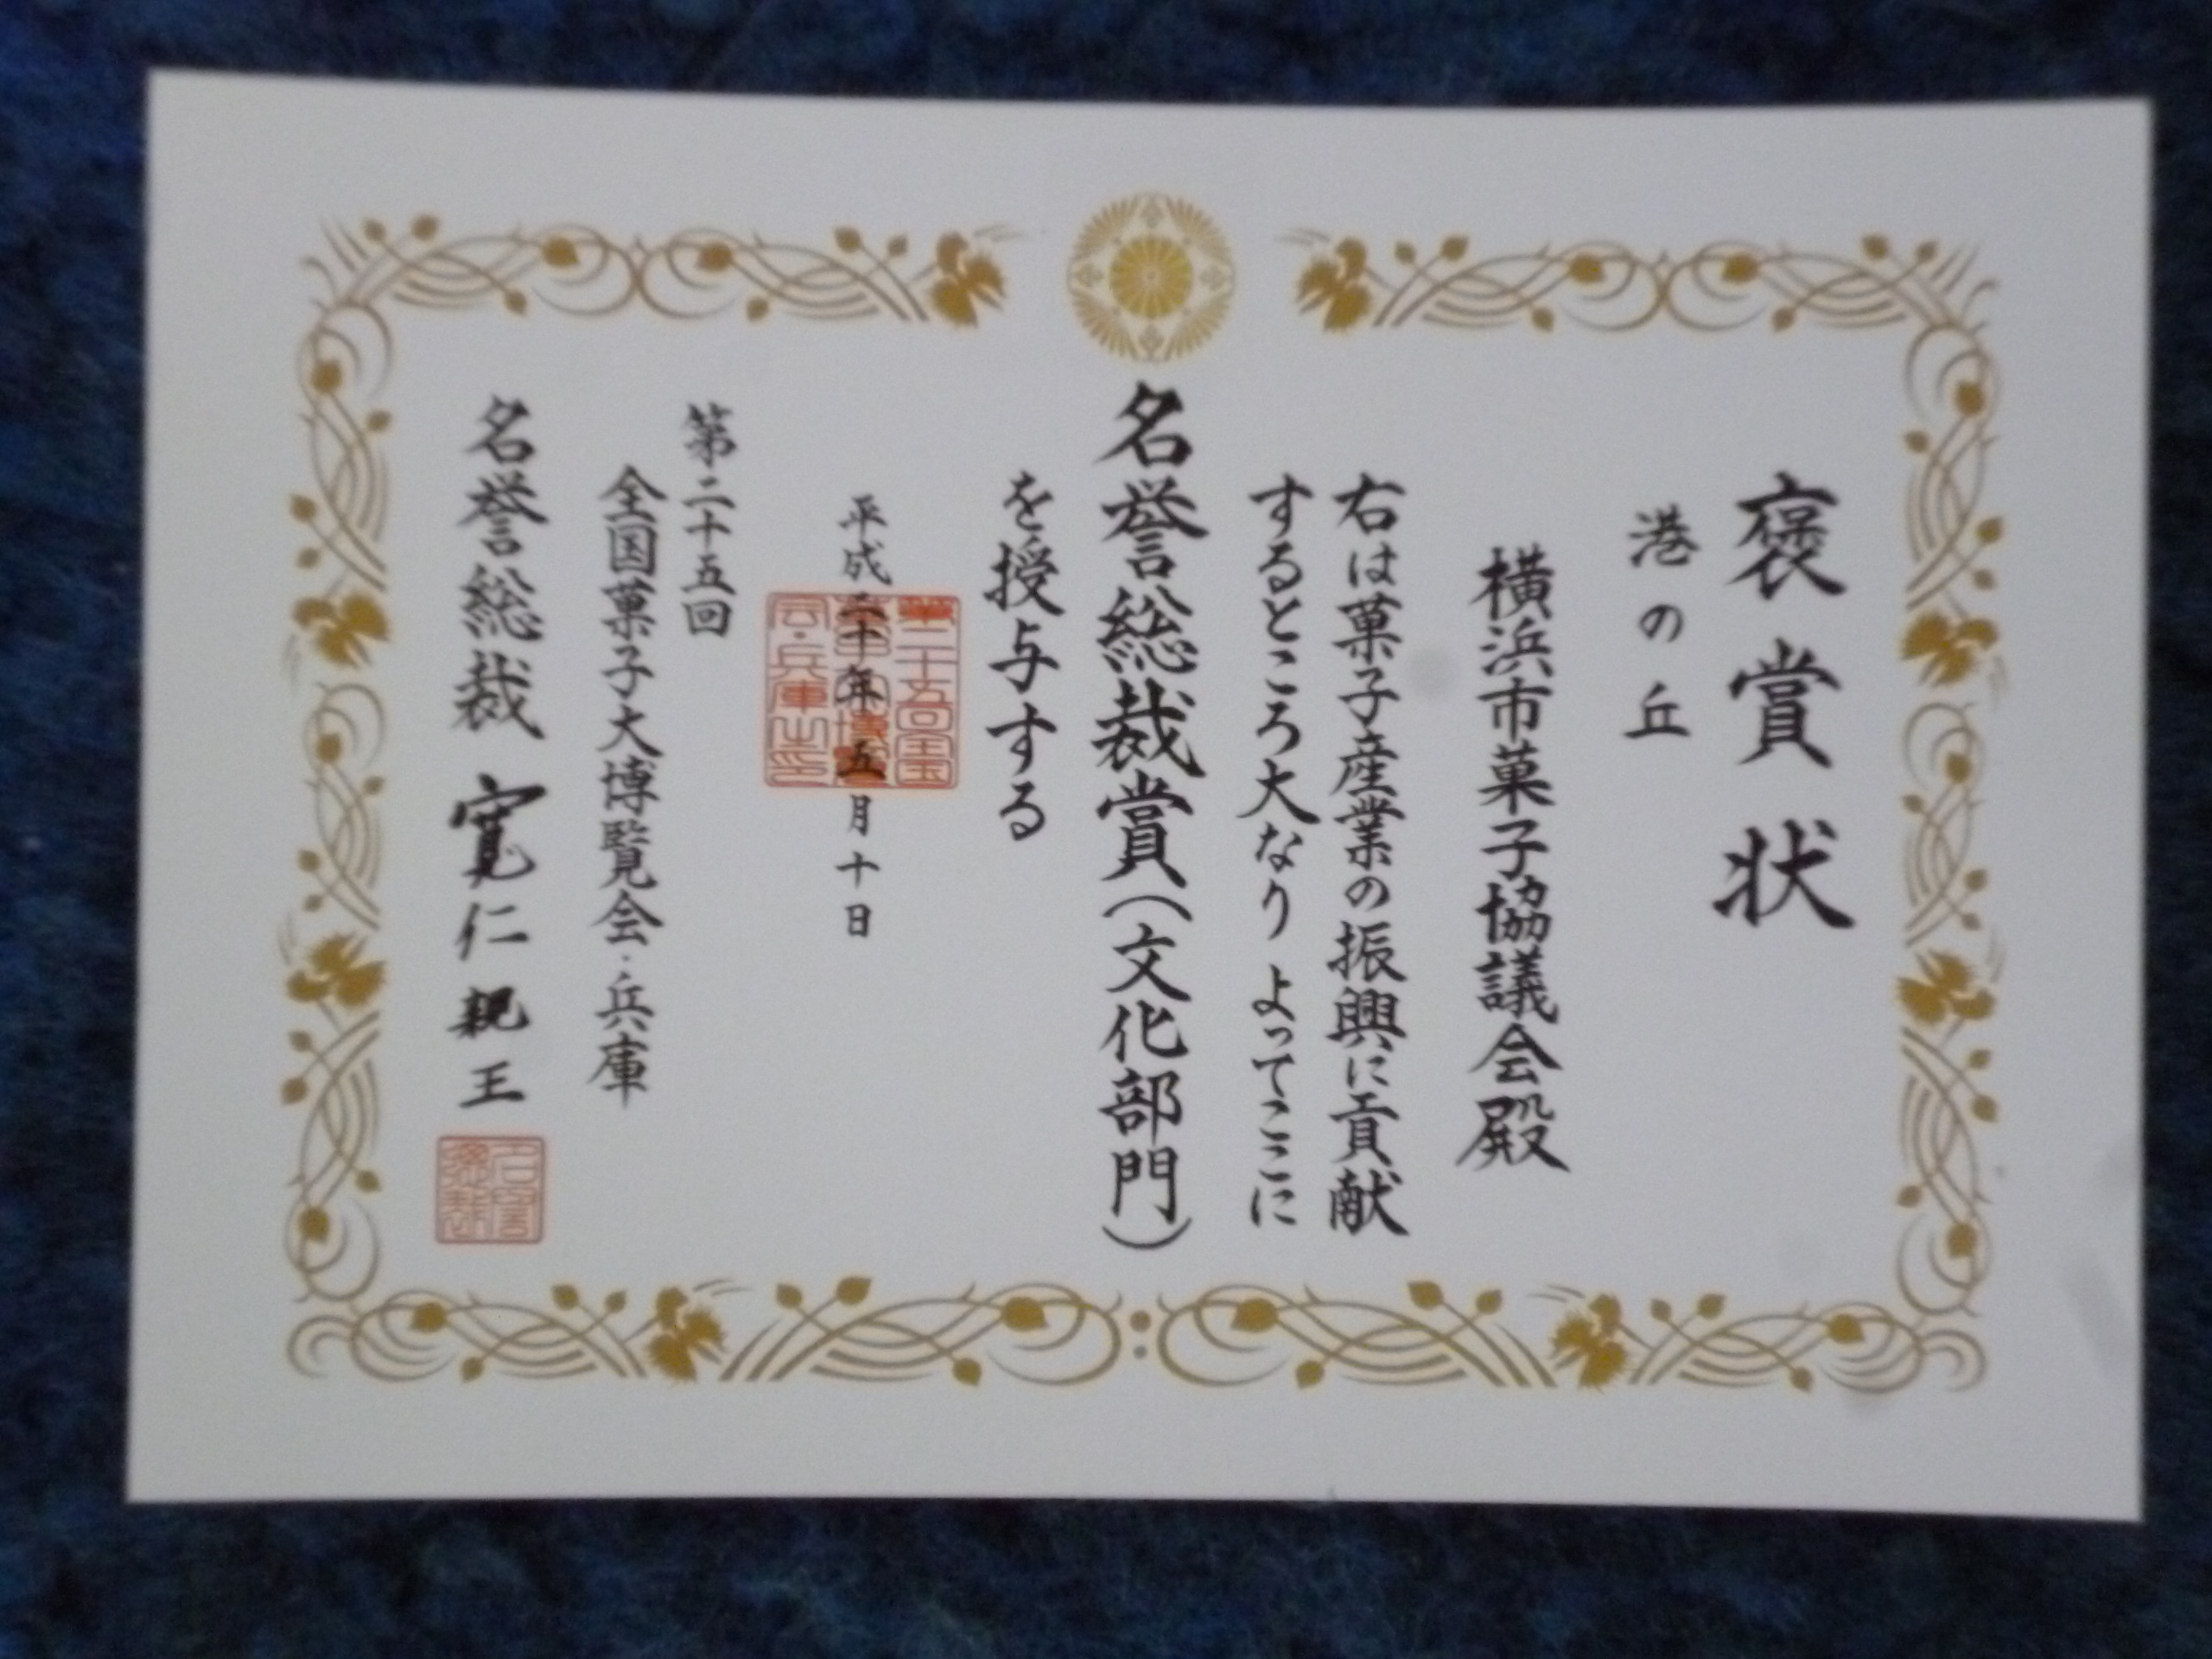 褒賞状
港の丘
横浜市菓子協議会殿
右は菓子産業の振興に貢献
するところ大なり よってここに
名誉総裁賞(文化部門)
を授与する
平成二十年五月十日
第二十五回
全国菓子大博覧会・兵庫
名誉総裁 寛仁親王
第二十五回全国
菓子大博覧
会・兵庫之印
名誉
総裁